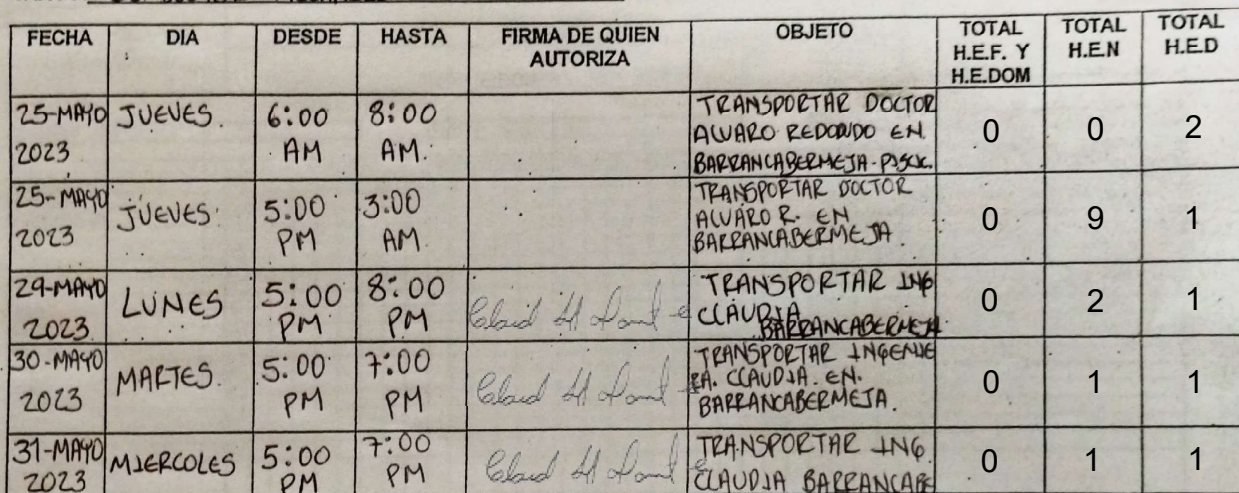 FECHA DIA DESDE HASTA FIRMA DE QUIEN AUTORIZA OBJETO TOTAL H.E.F. Y H.E.DOM TOTAL H.E.N TOTAL H.E.D
25-MAYO 2023 JUEVES. 6:00 AM 8:00 AM. TRANSPORTAR DOCTOR ALVARO REDONDO EN BARRANCABERMEJA 0 0 2
25-MAYO 2023 JUEVES. 5:00 PM 3:00 AM. TRANSPORTAR DOCTOR ALVARO R. EN BARRANCABERMEJA. 0 9 1
29-MAYO 2023 LUNES 5:00 PM 8:00 PM TRANSPORTAR ING CLAUDIA BARRANCABERMEJA 0 2 1
30-MAYO 2023 MARTES. 5:00 PM 7:00 PM TRANSPORTAR INGENIE RA. CLAUDIA. EN. BARRANCABERMEJA. 0 1 1
31-MAYO 2023 MIERCOLES 5:00 PM 7:00 PM TRANSPORTAR ING. CLAUDIA BARRANCABE 0 1 1